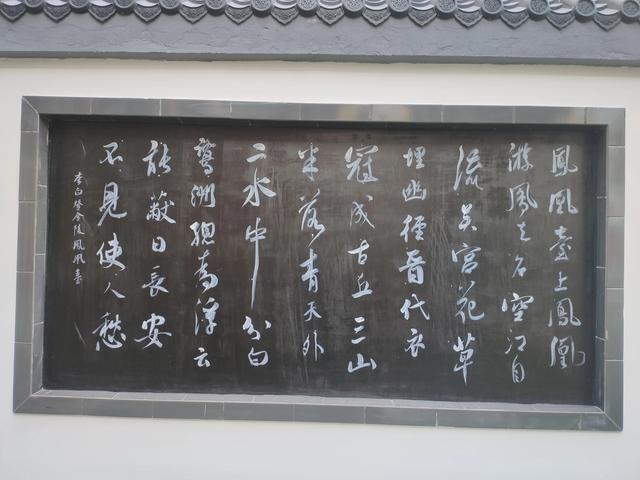 鳳凰臺上鳳凰
游鳳去台空江自
流吴宫花草
埋幽徑晋代衣
冠成古丘三山
半落青天外
二水中分白
鷺洲總為浮云
能蔽日長安
不見使人愁
李白登金陵鳳凰臺